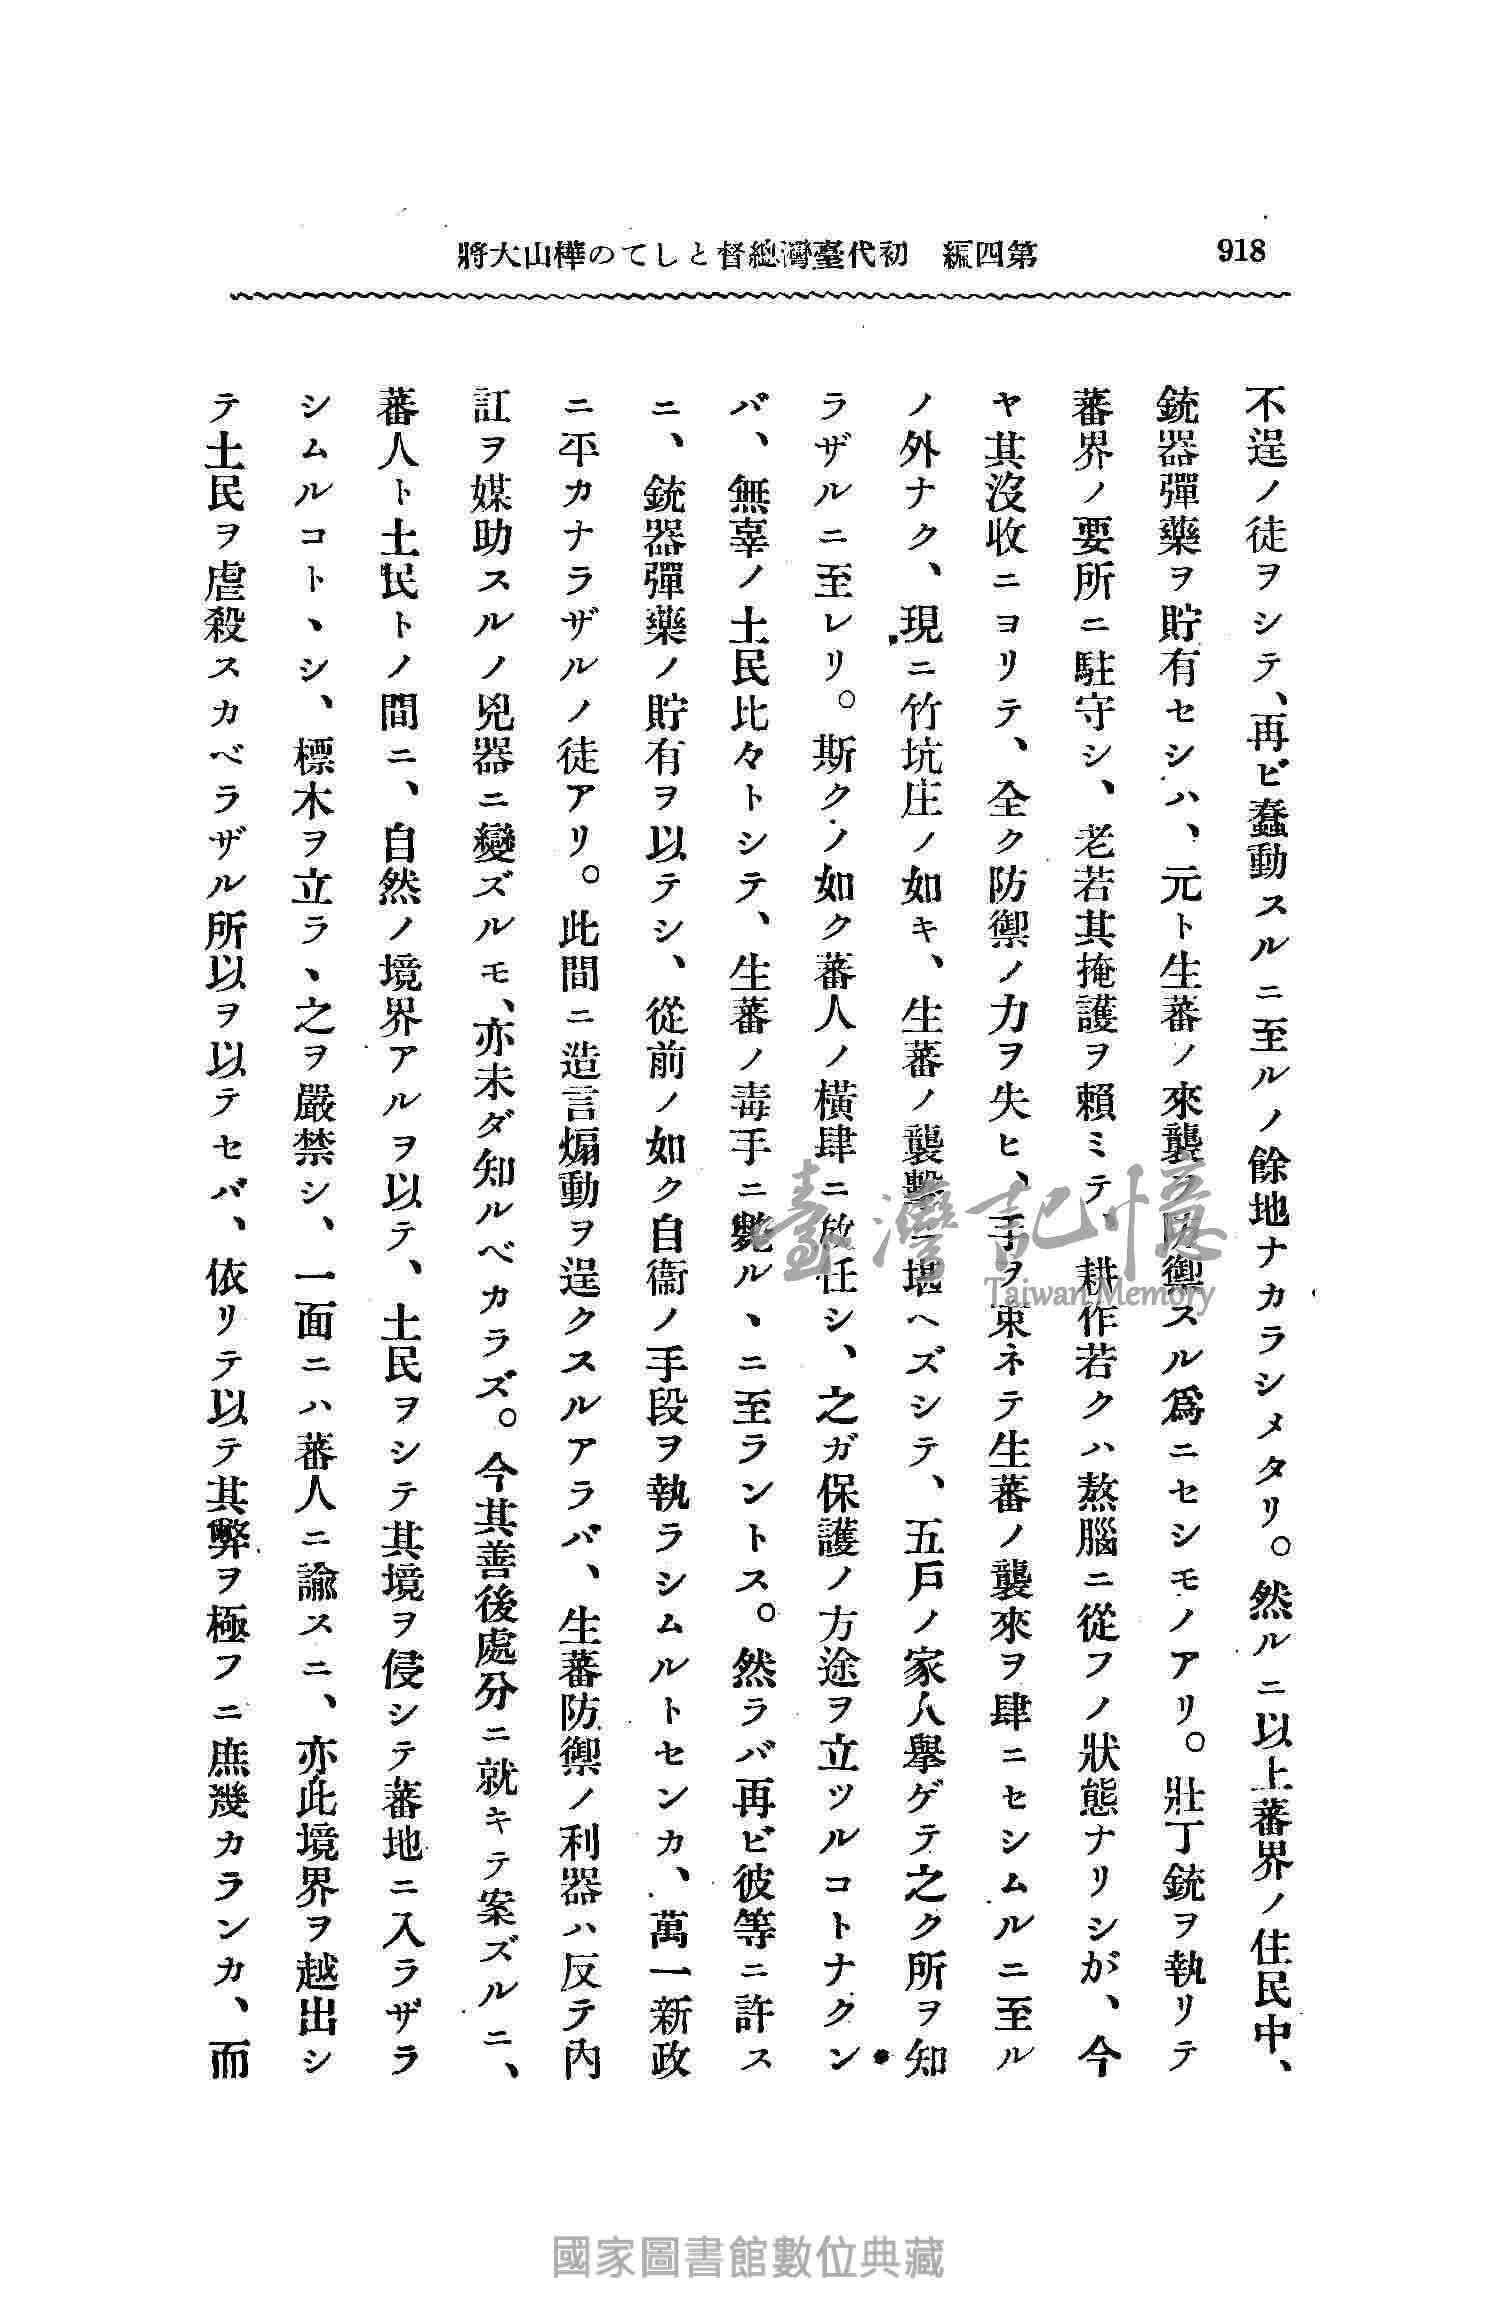 918
第四編　初代臺灣總督としての樺山大將
不逞ノ徒ヲシテ、再ビ蠢動スルニ至ルノ餘地ナカラシメタリ。然ルニ以上蕃界ノ住民中、
銃器彈藥ヲ貯有セシハ、元ト生蕃ノ來襲ヲ防禦スル爲ニセシモノアリ。壯丁銃ヲ執リテ
蕃界ノ要所ニ駐守シ、老若其掩護ヲ賴ミテ、耕作若クハ熬腦ニ從フノ狀態ナリシが、今
ヤ其沒收ニヨリテ、全ク防禦ノ力ヲ失ヒ、手ヲ束ネテ生蕃ノ襲來ヲ肆ニセシムルニ至ル
ノ外ナク、現ニ竹坑庄ノ如キ、生蕃ノ襲擊ニ堪ヘズシテ、五戶ノ家人擧ゲテ之ク所ヲ知
ラザルニ至レリ。斯クノ如ク蕃人ノ橫肆ニ放任シ、之ガ保護ノ方途ヲ立ツルコトナクン
バ、無辜ノ土民比々トシテ、生蕃ノ毒手ニ斃ルヽニ至ラントス。然ラバ再ビ彼等ニ許ス
ニ、銃器彈藥ノ貯有ヲ以テシ、從前ノ如ク自衞ノ手段ヲ執ラシムルトセンカ、萬一新政
ニ平カナラザルノ徒アリ。此間ニ造言煽動ヲ逞クスルアラバ、生蕃防禦ノ利器ハ反テ內
訌ヲ媒助スルノ兇器ニ變ズルモ、亦未ダ知ルベカラズ。今其善後處分ニ就キテ案ズルニ、
蕃人ト土民トノ間ニ、自然ノ境界アルヲ以テ、土民ヲシテ其境ヲ侵シテ蕃地ニ入ラザラ
シムルコトヽシ、標木ヲ立ラヽ之ヲ嚴禁シ、一面ニハ蕃人ニ諭スニ、亦此境界ヲ越出シ
テ土民ヲ虐殺スカベラザル所以ヲ以テセバ、依リテ以テ其弊ヲ極フニ庶幾カランカ、而
臺灣記憶
Taiwan Memory
國家圖書館數位典藏